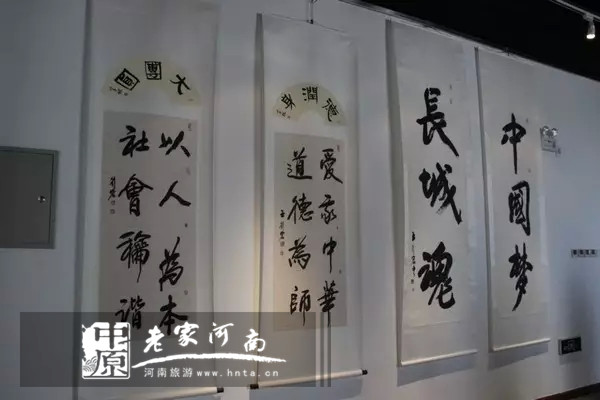 大團圓
以人為本
社會稱諧
德潤
愛我中華
道德為師
長城魂
中國梦
中原
老家河南
河南旅游 www.hnta.cn